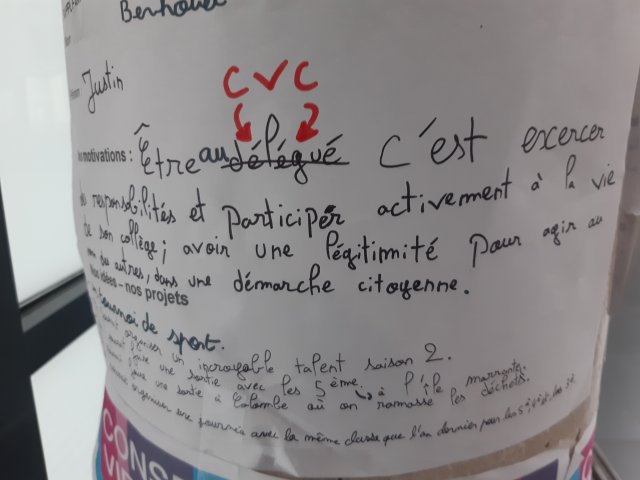 Justin
CVC
motivations : Être au délégué c'est excercer
responsabilités et participer activement à la vie
de son collège; avoir une légitimité pour agir au
autres, dans une démarche citoyenne.
idées – nos projets
tournoi de sport.
organiser un incroyable talent saison 2.
une sortie avec les 5ème à l'île marrante.
une sortie à Colombe où on ramasse les déchets.
organiser une journée avec la même classe que l'an dernier pour les
CONSE
VIE